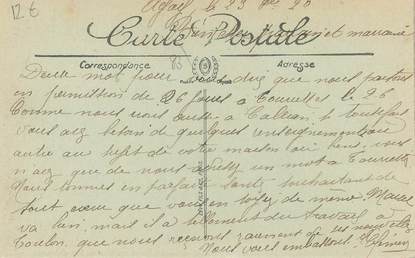 12 €
Agay le 23 20
Carte Postale
Correspondance Adresse
Deux mot pour dire que nous partons
en permission de 26 jours a Tourrettes le 26
Comme nous nous a Callian si toutefois
vous avez besoin de quelques renseignements ou
autre au sujet de votre maison ou bens, vous
n'avez que de nous un mot a Tourrettes
Nous sommes en parfaite santé souhaitant de
tout cœur que vous en soyez de même. Marius
va bien, mais il a tellement du travail a
Toulon que nous recevons rarement de ses nouvelles
Nous vous embrassons.